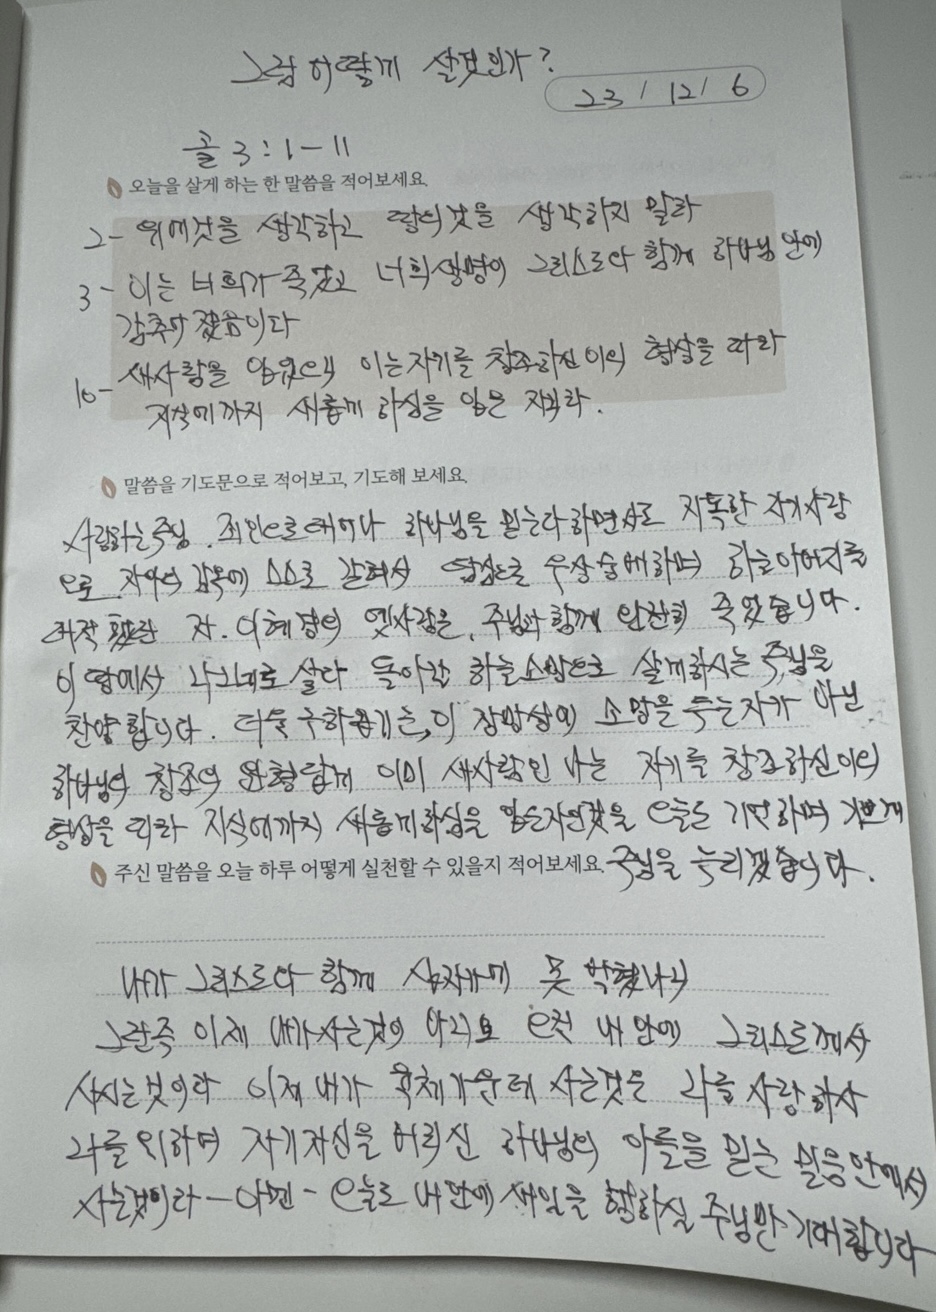 그럼 어떻게 살것인가?
23 / 12 / 6
골 3 : 1 - 11
오늘을 살게 하는 한 말씀을 적어보세요.
2- 위에것을 생각하고 땅의것을 생각하지 말라
3- 이는 너희가 죽었고 너희생명이 그리스도와 함께 하나님 안에
감추어 졌음이다
10- 새사람을 입었으니 이는자기를 창조하신 이의 형상을 따라
지식에까지 새롭게 하심을 입은 자니라.
말씀을 기도문으로 적어보고, 기도해 보세요.
사랑하는주님. 죄인으로태어나 하나님을 믿는다하면서도 지독한 자기사랑
으로 자아의 감옥에 스스로 갇혀서 땅것을 우상숭배하며 하늘아버지를
자. 이혜경의 옛사람은, 주님과 함께 완전히 죽었습니다.
이 땅에서 나그네로 살다 돌아갈 하늘소망으로 살게하시는 주님을
찬양합니다. 더욱 구하옵기는, 이 장막상의 소망을 두는자가 아닌
하나님의 창조의 이미 새사람인 나는 자기를 창조하신이의
형상을 따라 지식에까지 새롭게하심을 입은자인것을 오늘도 기억하며 기쁘게
주신 말씀을 오늘 하루 어떻게 실천할 수 있을지 적어보세요. 주님을 누리겠습니다.
내가 그리스도와 함께 십자가에 못 박혔나니
그런즉 이제 내가사는것이 아니요 오직 내 안에 그리스도께서
사시는것이라 이제 내가 육체가운데 사는것은 나를 사랑하사
나를 위하여 자기자신을 버리신 하나님의 아들을 믿는 믿음안에서
사는것이라 - 아멘 - 오늘도 내안에 새일을 행하실 주님만 기대합니다